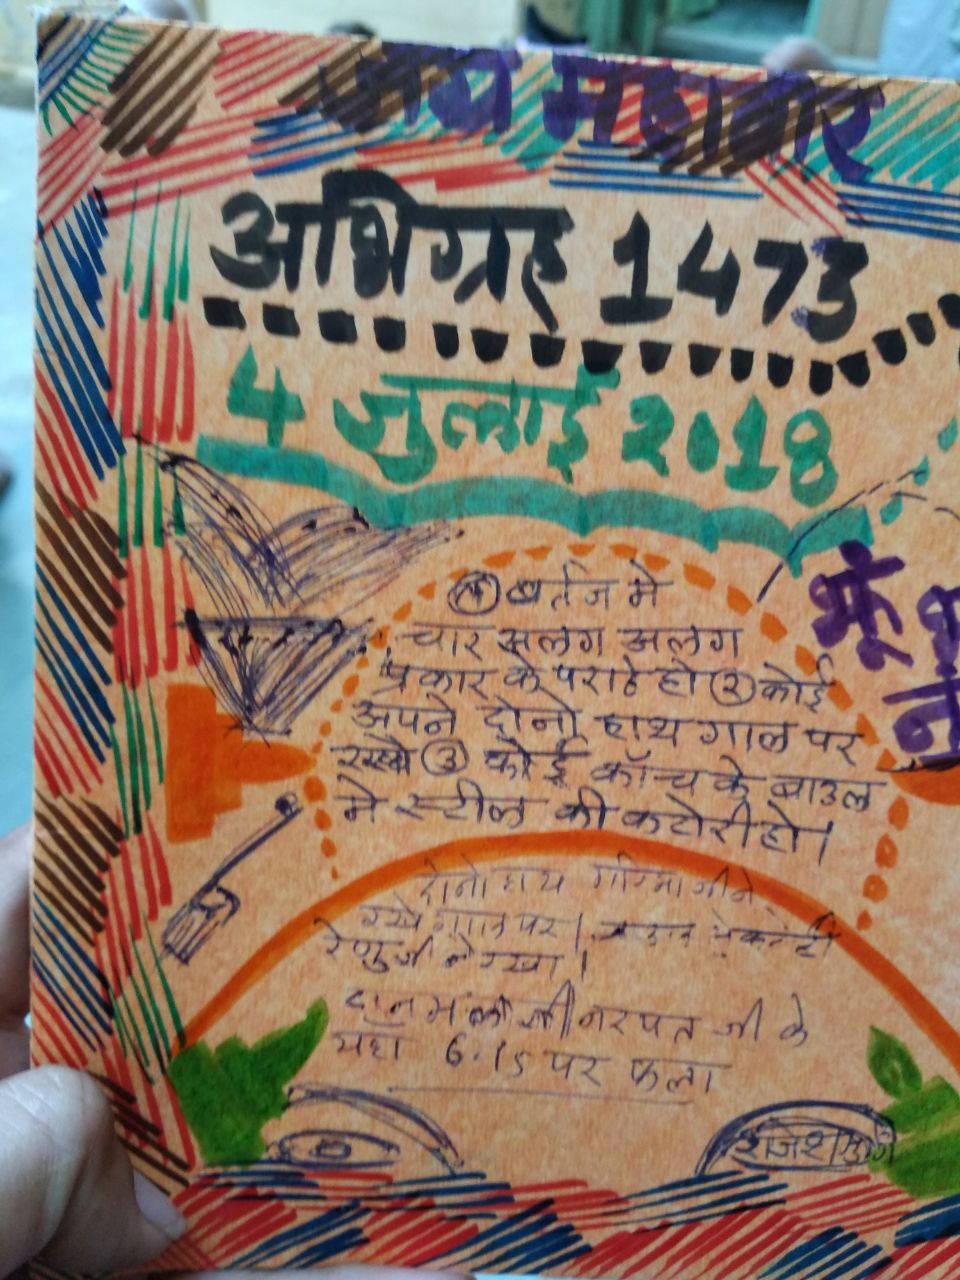 जय महावीर
अभिग्रह 1473
4 जुलाई 2018
① बर्तन मे
चार अलग अलग
प्रकार के पराठे हो ② कोई
अपने दोनो हाथ गाल पर
रखे ③ कोई काँच के बाउल
मे स्टील की कटोरी हो।
दोनो हाथ गरिमा जी ने
रखे गाल पर।
रेणु जी ने रखा।
जी नरपत जी के
यहाँ 6.15 पर फला